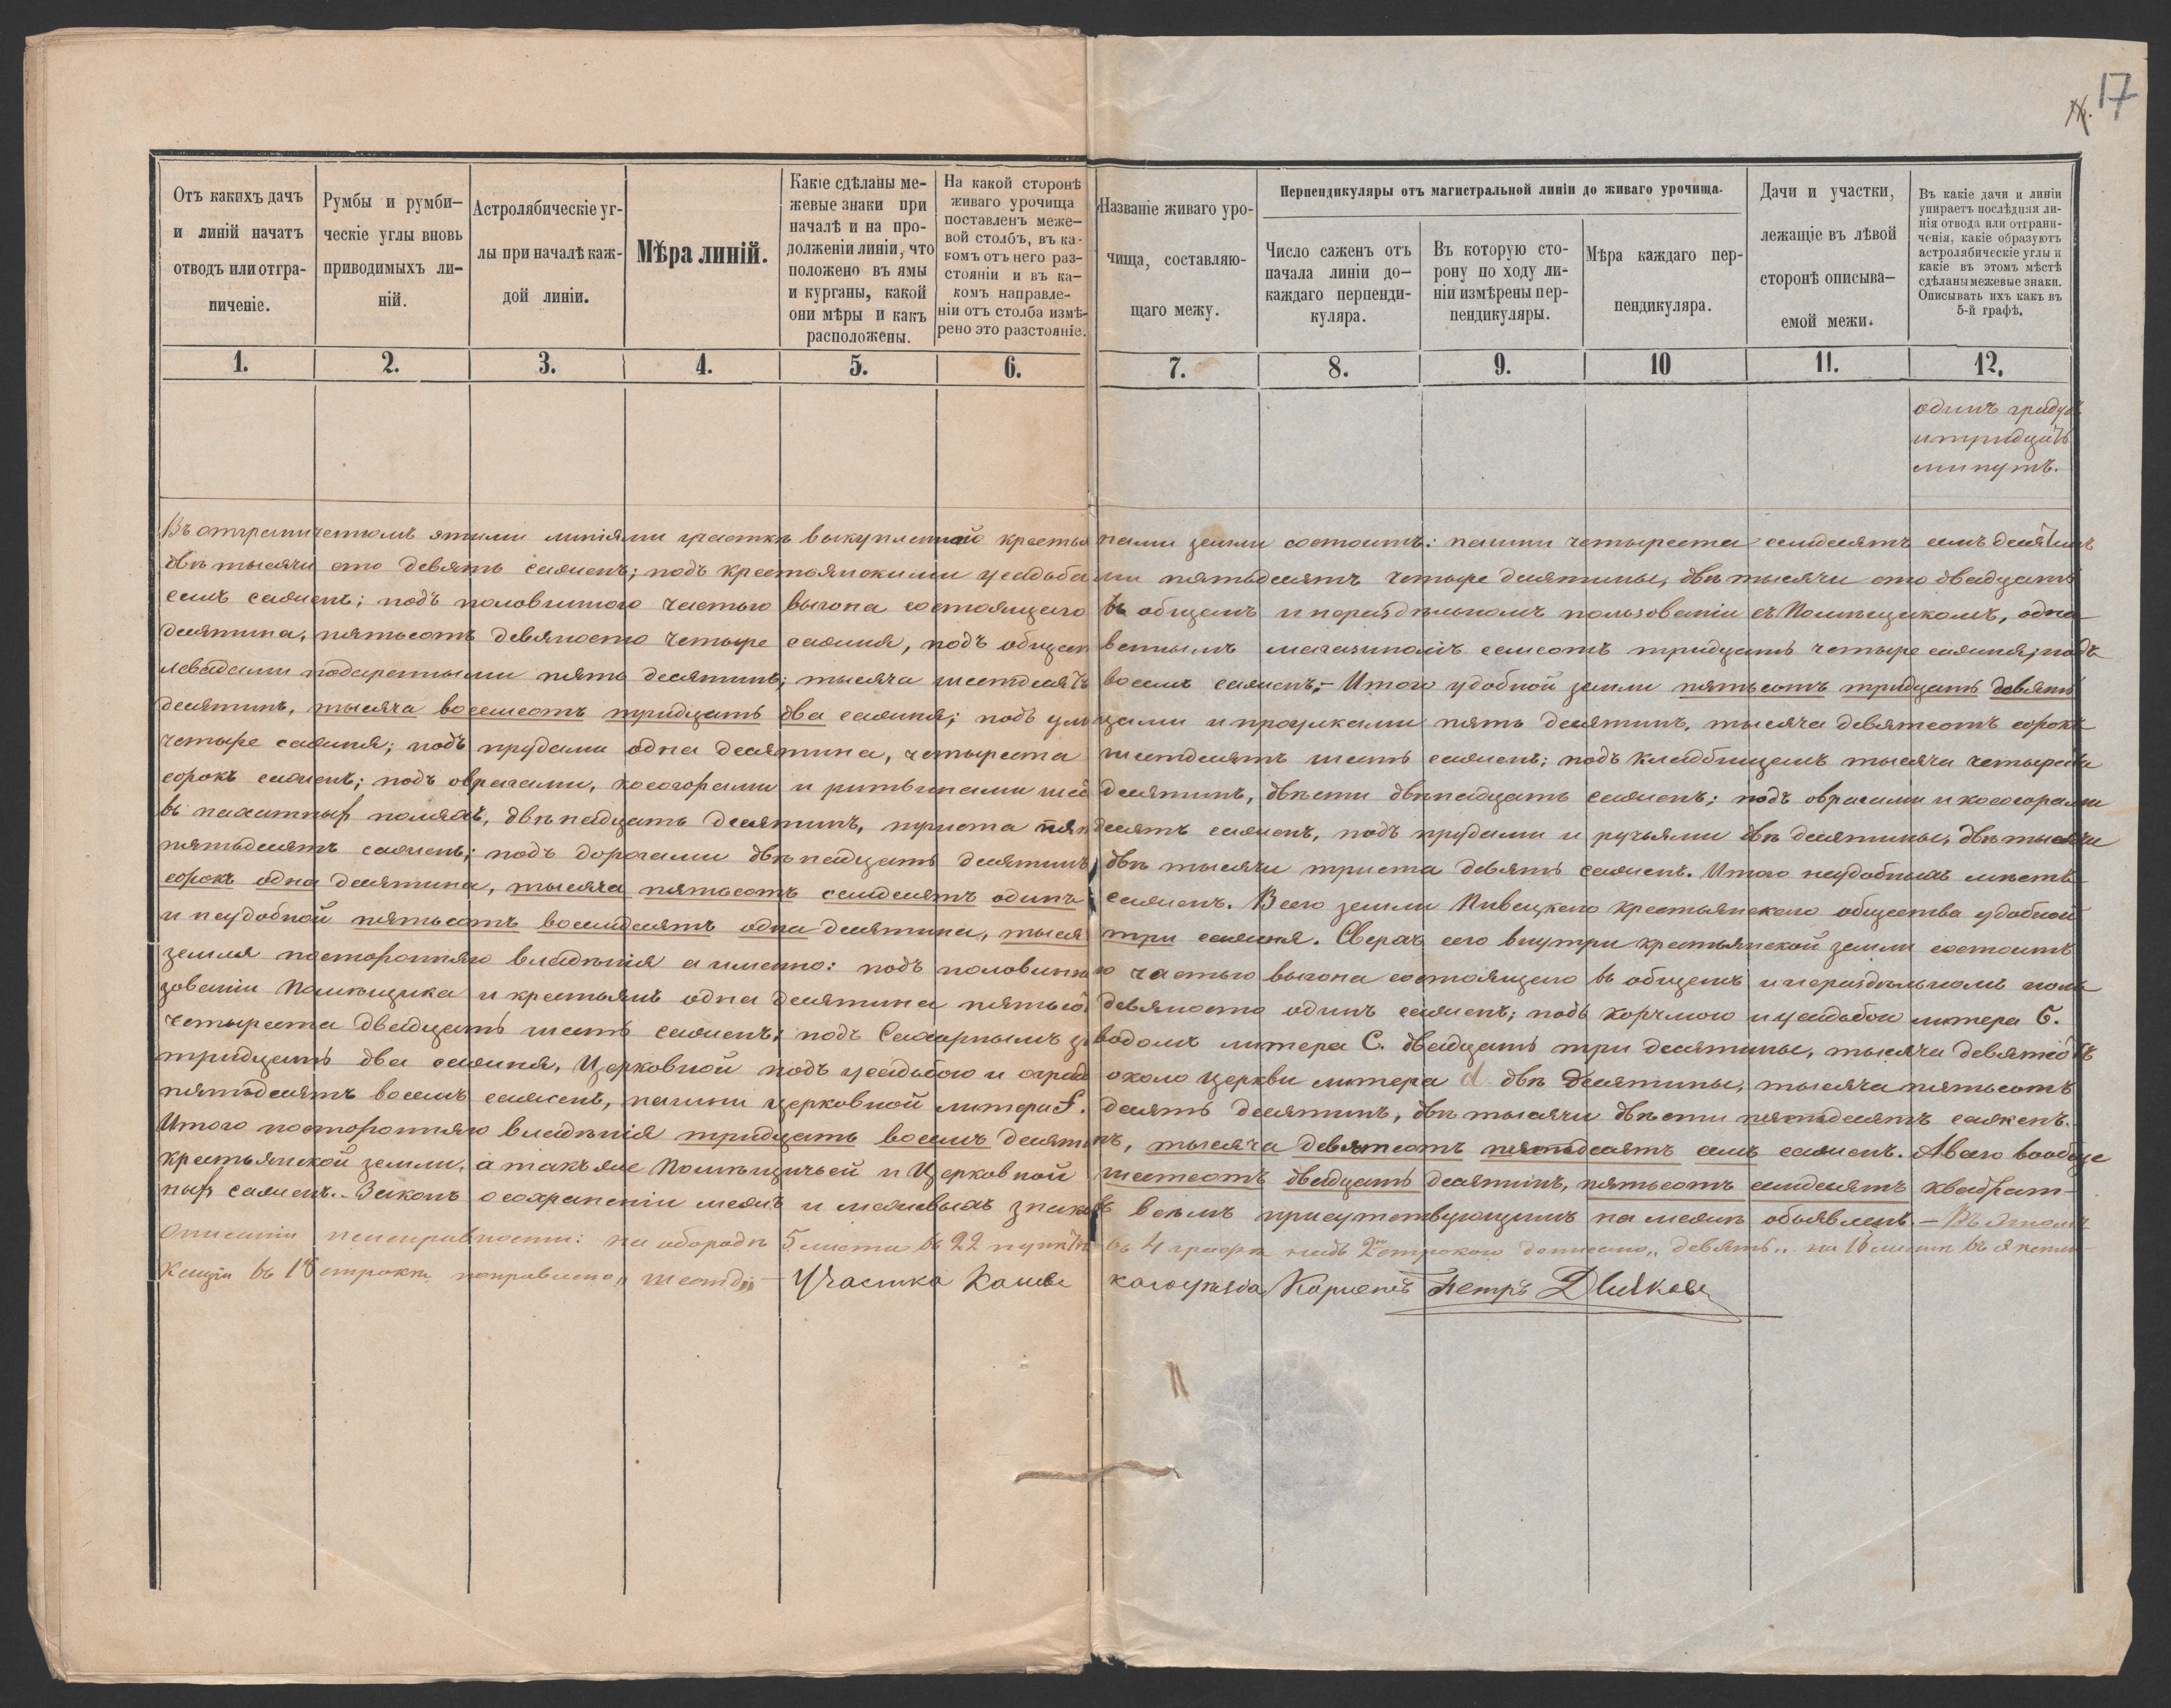 17
Отъ какихъ дачъ
и линій начатъ
отводъ или отгра-
ниченіе.
Румбы и румби-
ческіе углы вновь
приводимыхъ ли-
ній.
Астролябическіе уг-
лы при началѣ каж-
дой линіи.
Мѣра линій.
Какіе сдѣланы ме-
жевые знаки при
началѣ и на про-
долженіи линіи, что
положено въ ямы
и курганы, какой
они мѣры и какъ
расположены.
На какой сторонѣ
живаго урочища
поставленъ меже-
вой столбъ, въ ка-
комъ отъ него раз-
стояніи и въ ка-
комъ направле-
ніи отъ столба измѣ-
рено это разстояніе.
Названіе живаго уро-
чища, составляю-
щаго межу.
Перпендикуляры отъ магистральной линіи до живаго урочища.
Число саженъ отъ
начала линіи до-
каждаго перпенди-
куляра.
Въ которую сто-
рону по ходу ли-
ніи измѣрены пер-
пендикуляры.
Мѣра каждаго пер-
пендикуляра.
Дачи и участки,
лежащіе въ лѣвой
сторонѣ описыва-
емой межи.
Въ какіе дачи и линіи
упираетъ послѣдняя ли-
нія отвода или отграни-
ченія, какіе образуютъ
астролябическіе углы и
какіе въ этомъ мѣстѣ
сдѣланы межевые знаки.
Описывать ихъ какъ въ
5-й графѣ.
1. 2. 3. 4. 5. 6. 7. 8. 9. 10 11. 12.
одинъ градусъ
и тридцать
минутъ.
Въ отграниченномъ этими линіями участкѣ выкупленной крестьянами земли состоитъ: пашни четыреста семдесятъ семь десятинъ
двѣ тысячи сто девять саженъ; подъ крестьянскими усадьбами пятьдесятъ четыре десятины, двѣ тысячи сто двадцать
семь саженъ; подъ половинною частью выгона состоящего въ общемъ и нераздѣльномъ пользованіи съ Помѣщикомъ, одна
десятина, пятьсотъ девяносто четыре сажня, подъ общественнымъ магазиномъ семсотъ тридцать четыре сажня; подъ
левадами подаренными пять десятинъ; тысяча шестдесятъ восемь саженъ; - Итого удобной земли пятьсотъ тридцать девять
десятинъ, тысяча восемсотъ тридцать два сажня; подъ улицами и проулками пять десятинъ, тысяча девятсотъ сорокъ
четыре сажня; подъ прудами одна десятина, четыреста шестдесятъ шесть саженъ; подъ кладбищемъ тысяча четыреста
сорокъ саженъ; подъ оврагами, косогорами и рытвинами десятинъ, двѣсти двѣнадцать саженъ; подъ оврагами и косогорами
въ пахатныхъ поляхъ, двѣнадцать десятинъ, триста пятдесятъ саженъ, подъ прудами и ручьями двѣ десятины, двѣ тысячи
пятьдесятъ саженъ; подъ дорогами двѣнадцать десятинъ, двѣ тысячи триста девять саженъ. Итого неудобныхъ мѣстъ
сорокъ одна десятина, тысяча пятьсотъ семдесятъ одинъ сажень. Всего земли Пивецкаго крестьянскаго общества удобной
и неудобной пятьсотъ восемдесятъ одна десятина, тысяча три сажня. Сверхъ сего внутри крестьянской земли состоитъ
земля посторонняго владѣнія а именно: подъ половинною частью выгона состоящего въ общемъ и нераздѣльномъ поль
зованіи Помѣщика и крестьянъ одна десятина пятьсотъ девяносто одинъ сажень; подъ корчмою и усадьбою литера
четыреста двадцать шесть саженъ; подъ Сахарнымъ заводомъ литера С. двадцать три десятины, тысяча девятсотъ
тридцать два сажня, Церковной подъ усадьбою и оградою около церкви литера d двѣ десятины, тысяча пятьсотъ
пятьдесятъ восемь саженъ, пашни церковной литера f. десять десятинъ, двѣ тысячи двѣсти пятьдесятъ саженъ.
Итого посторонняго владѣнія тридцать восемь десятинъ, тысяча девятсотъ пятьдесятъ семь саженъ. А всего вообще
крестьянской земли, а такъ же Помѣщичьей и Церковной шестсотъ двадцать десятинъ, пятьсотъ семдесятъ квадрат-
ныхъ саженъ. Законъ о сохраненіи межъ и межевыхъ знаковъ всѣмъ присутствующимъ на межѣ объявленъ. - Въ этомъ
описаніи неисправности: на оборотѣ 5 листа въ 22 пунктѣ въ 4 графѣ надъ 2ю строкою дописано "девять" на 16 листѣ въ
въ 18 строкѣ поправлено "шестд" - Участка уѣзда Петръ